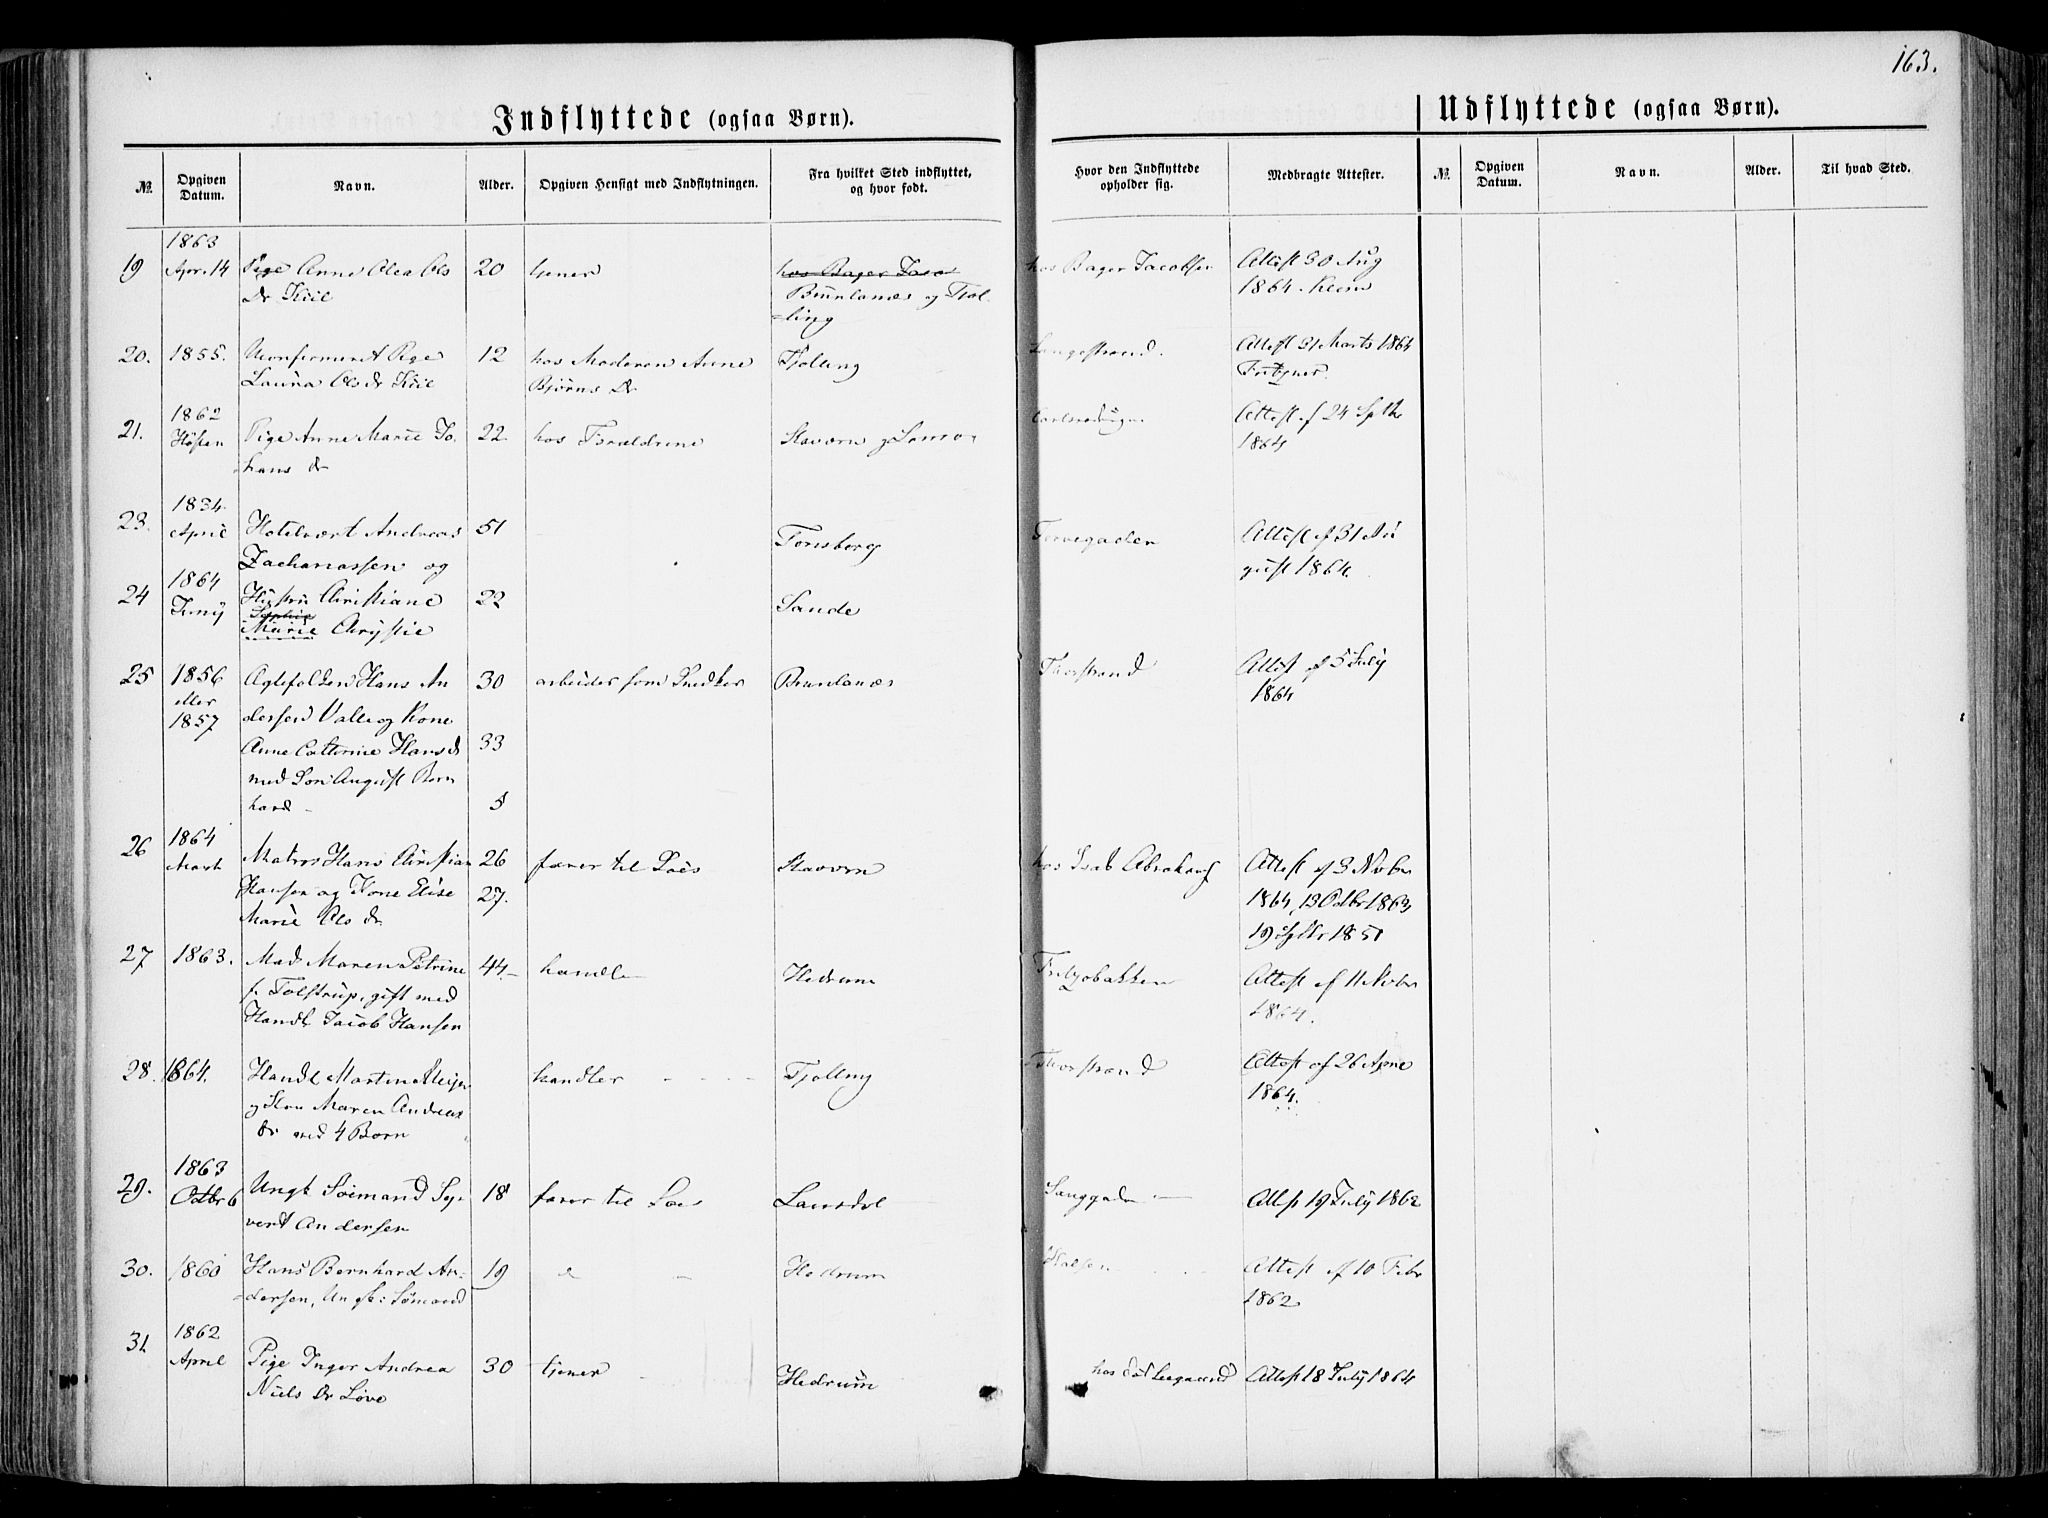 163.
Indflyttede (ogsaa Børn).
Udflyttede (ogsaa Børn).
№. Opgiven Datum. Navn. Alder. Opgiven Hensigt med Indflytningen. Fra hvilket Sted indflyttet, og hvor født. Hvor den Indflyttede opholder sig. Medbragte Attester. №. Opgiven Datum. Navn. Alder. Til hvad Sted.
1863
19 Apr. 14 Pige Anne Olea Ols 20 tjener hos Bager Jaco hos Bager Jacobsen Attest 30 Aug
Dr Kiil Brunlanæs og Tjøl- 1864.
=ling
20. 1855. Uconfirmeret Pige 12 hos Moderen Anne Tjølling Langestrand. Attest 31 Marts 1864
Laura Ols dr Kiil Bjørns Dr
1862
21. Høsten Pige Anne Marie Jo- 22. hos Forældrene Stavern Attest af 24 Sptbr
hans dr 1864
1834.
23. April Hotelvært Andreas 51 Tønsberg Torvegaden Attest af 31 Au
Zachariassen og gust 1864.
1864
24 Juny Hustru Christiane 22 Sande
Sophie
Marie Chrystie
25 1856 Ægtefolken Hans An 30 arbeider som Snedker Brunlanæs Thorstrand Attest af 5 July
eller 1864
1857 dersen Valle og Kone
Anne Cathrine Hans dr 33
med Søn August Bern
hard - 5
1864
26 Mart Matros Hans Christian 26 farer til Søes Stavern hos Isak Abrahams Attest af 3 Novbr
Hansen og Kone Elise 27. 1864, 13 Octbr 1863
Marie Ols dr 19 Sptbr 1851
27 1863. Mad. Maren Petrine 44.- handle Hedrum Fritzøbakken Attest af 11 Novbr
f. Tolstrup, gift med 1864.
Handl. Jacob Hansen
28. 1864. Handl. Martin Meyer handler Tjølling Thorstrand Attest af 26 April
og Kone Maren Andreas 1864.
dr med 4 Børn
1863
29. Octbr 6 Ungk. Søemand Sy- 18 farer til Søes Laurdal Langgaden Attest 19 July 1862
vert Andersen
30. 1860 Hans Bernhard An- 19 d Hedrum Attest af 10 Febr
=dersen, Ungk: Sømand 1862
1862
31. April Pige Inger Andrea 30 tjener Hedrum hos Attest 18 July 1864
Niels Dr Løve